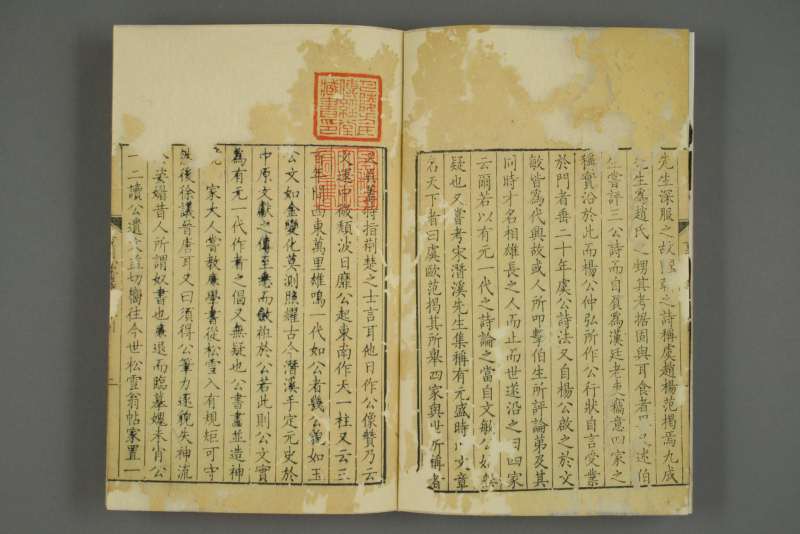 先生深服之故
先生為趙氏之甥其考据固與耳食者
生嘗評三公詩而自負為漢廷老吏竊意四家之
稱實沿於此而楊公仲弘所作公行狀自言受業
於門者垂二十年虞公詩法又自楊公啟之於文
敏皆為代興故或人所叩擊伯生所評論第及其
同時才名相雄長之人而止而世遂沿之曰四家
云爾若以有元一代之詩論之當自文敏公
疑也又嘗考宋潛溪先生集稱有元盛時 文章
名天下者曰虞歐范揭其所舉四家與世所稱者
將指荆楚之士言耳他日作公像贊乃云
文運中微頹波日靡公起東南作天一柱又云三
百年間西東萬里雄鳴一代如公者幾公貌如玉
公文如金變化莫測照耀古今潛溪手定元史於
中原文獻之傳至悉而斂衽於公若此則公文實
為有元一代作者之倡又無疑也公書畫並造神
家大人嘗教廉學書從松雪入有規矩可守
後徐議晉唐耳又曰須得公筆力逐貌失神流
姿媚昔人所謂奴書也廉退而臨摹媿未肖公
一二讀公遺 益切嚮往今世松雪翁帖家置一